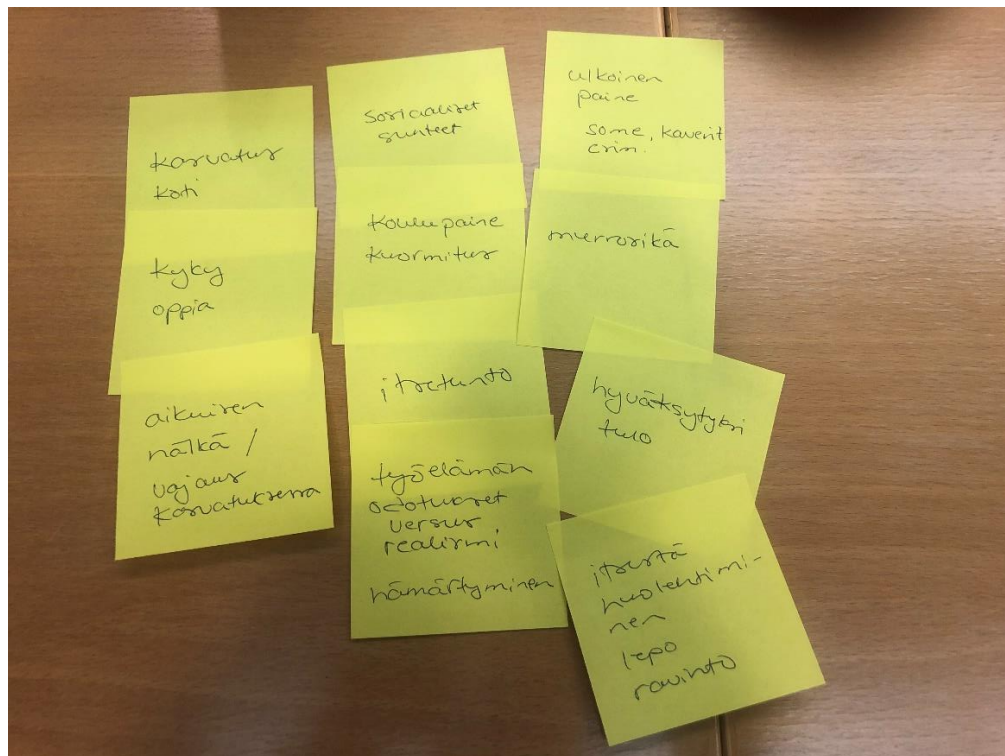 kasvatus
koti
kyky
oppia
aikuisen
nälkä /
vajaus
kasvatuksessa
sosiaaliset
suhteet
koulupaine
kuormitus
itsetunto
työelämän
odotukset
versus
realismi
hämärtyminen
ulkoinen
paine
some, kaverit
esim.
murrosikä
hyväksytyksi
tulo
itsestä
huolehtimi-
nen
lepo
ravinto